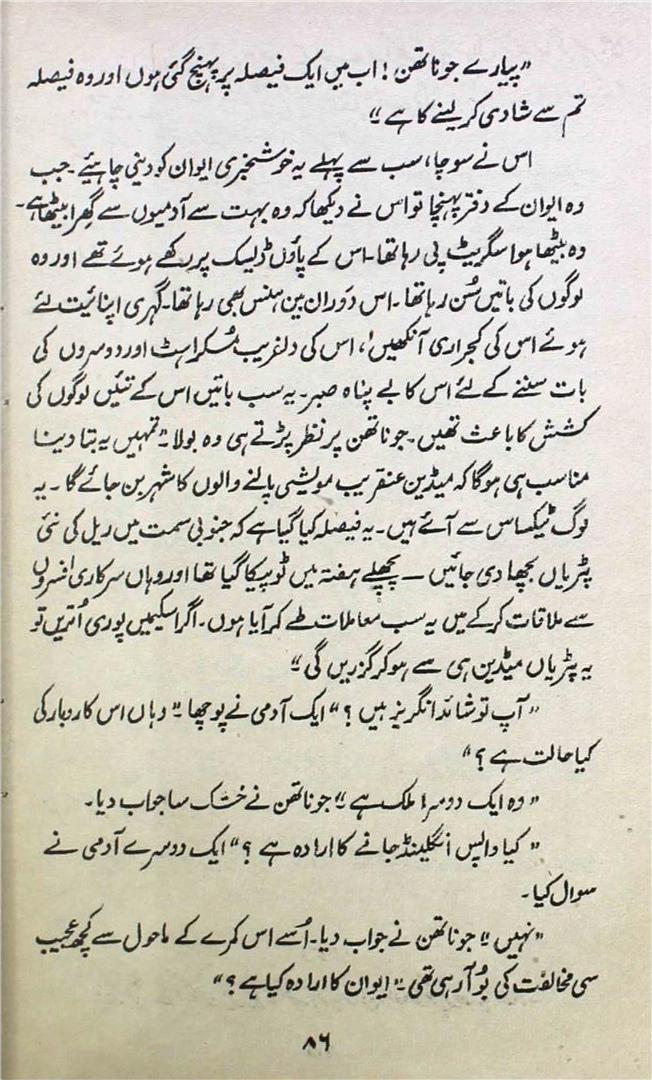 "پیارے جوناتھن! اب میں ایک فیصلہ پر پہنچ گئی ہوں اور وہ فیصلہ
تم سے شادی کر لینے کا ہے"
اس نے سوچا، سب سے پہلے یہ خوشخبری ایوان کو دینی چاہیئے۔ جب
وہ ایوان کے دفتر پہنچا تو اس نے دیکھا کہ وہ بہت سے آدمیوں سے گھرا بیٹھا ہے۔
وہ بیٹھا ہوا سگریٹ پی رہا تھا۔ اس کے پاؤں ڈیسک پر رکھے ہوئے تھے اور وہ
لوگوں کی باتیں سُن رہا تھا۔ اس دَوران میں ہنس بھی رہا تھا۔ گہری اپنائیت لئے
ہوئے اس کی کجراری آنکھیں، اس کی دلفریب مُسکراہٹ اور دوسروں کی
بات سننے کے لئے اس کا بے پناہ صبر۔ یہ سب باتیں اس کے تئیں لوگوں کی
کشش کا باعث تھیں۔ جوناتھن پر نظر پڑتے ہی وہ بولا "تمہیں یہ بتا دینا
مناسب ہی ہوگا کہ میڈین عنقریب مویشی پالنے والوں کا شہر بن جائے گا۔ یہ
لوگ ٹیکساس سے آئے ہیں۔ یہ فیصلہ کیا گیا ہے کہ جنوبی سمت میں ریل کی نئی
پٹریاں بچھا دی جائیں — پچھلے ہفتہ میں ٹوپیکا گیا تھا اور وہاں سرکاری افسروں
سے ملاقات کر کے میں یہ سب معاملات طے کر آیا ہوں۔ اگر اسکیمیں پوری اُتریں تو
یہ پٹریاں میڈین ہی سے ہو کر گزریں گی"
"آپ تو شائد انگریز ہیں؟" ایک آدمی نے پوچھا۔ "وہاں اس کاروبار کی
کیا حالت ہے؟"
"وہ ایک دوسرا ملک ہے" جوناتھن نے خشک سا جواب دیا۔
"کیا واپس انگلینڈ جانے کا ارادہ ہے؟" ایک دوسرے آدمی نے
سوال کیا۔
"نہیں" جوناتھن نے جواب دیا۔ اُسے اس کمرے کے ماحول سے کچھ عجیب
سی مخالفت کی بُو آ رہی تھی۔ "ایوان کا ارادہ کیا ہے؟"
۸۶